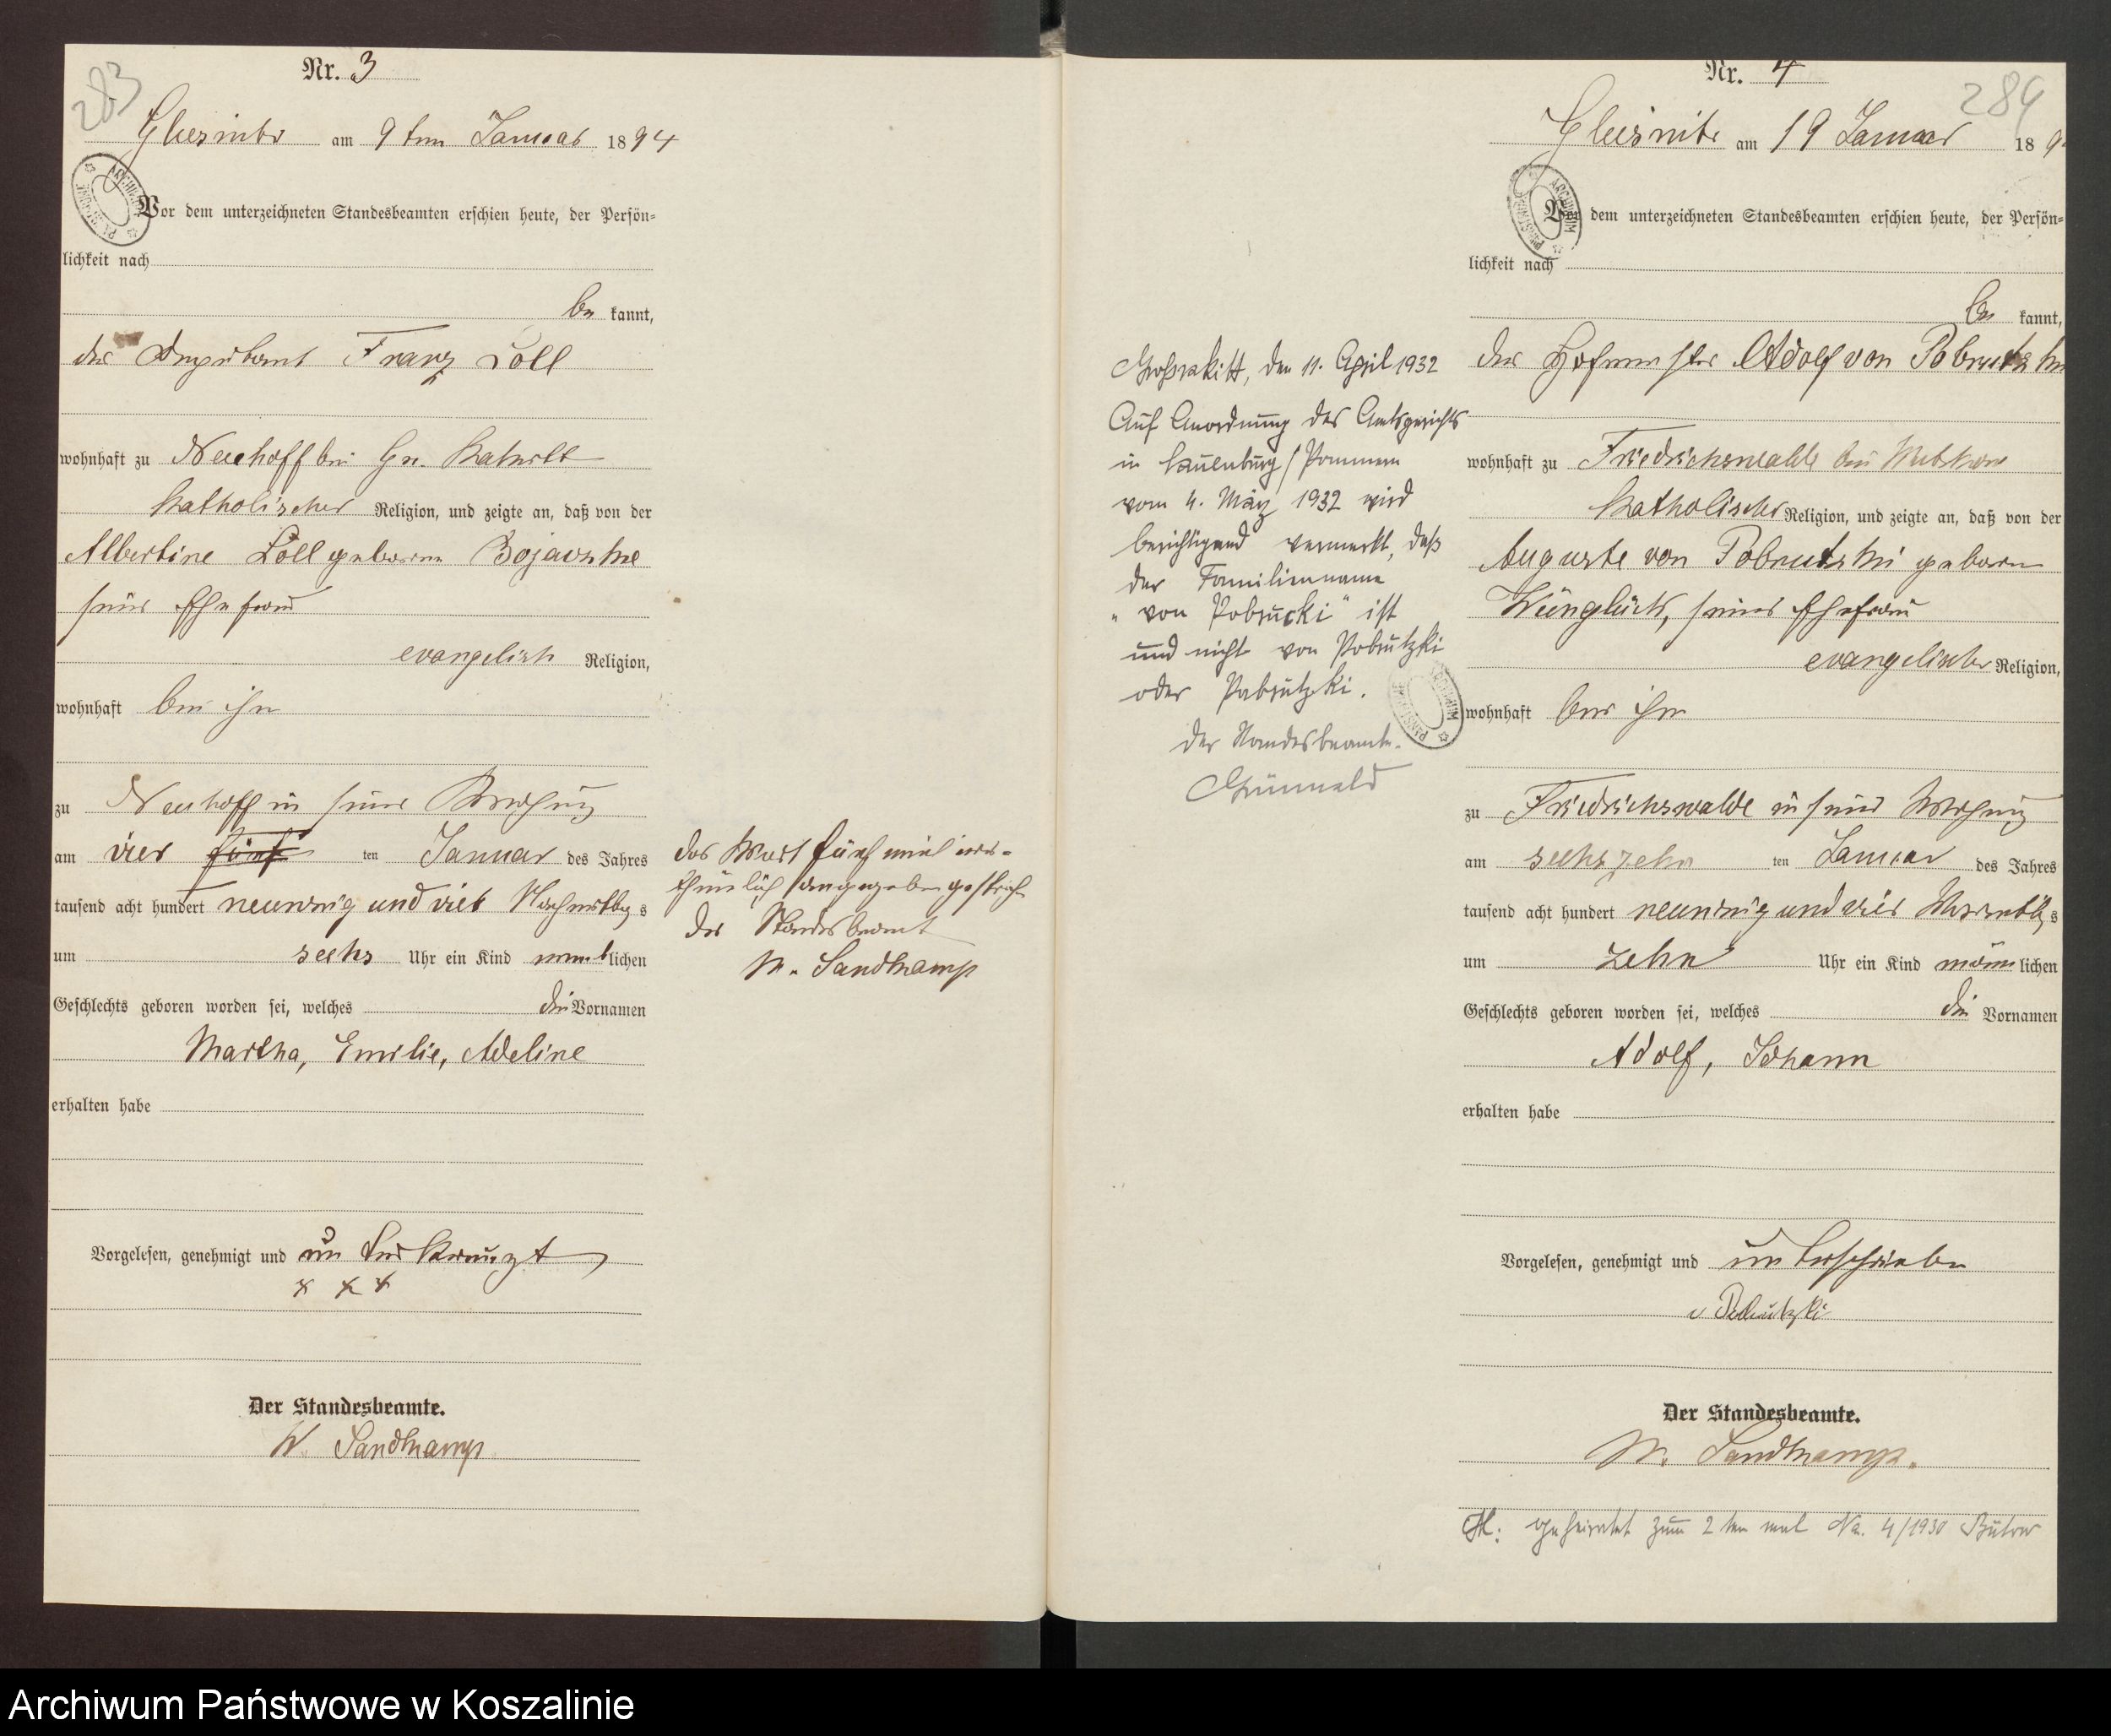 283
Nr. 3
am 9ten Januar 1894
Vor dem unterzeichneten Standesbeamten erschien heute, der Persön=
lichkeit nach
be kannt,
der Franz Loll
wohnhaft zu Neuhoff bei Gr.
katholischer Religion, und zeigte an, daß von der
Albertine Loll geborene
seine Ehefrau
evangelisch Religion,
wohnhaft bei ihm
zu Neuhoff in seiner Wohnung
am vier fünf ten Januar des Jahres
tausend acht hundert neunzig und vier Nachmittags
um sechs Uhr ein Kind weiblichen
Geschlechts geboren worden sei, welches die Vornamen
Martha, Emilie, Adeline
erhalten habe
Vorgelesen, genehmigt und unterkreuzt
x x x
Der Standesbeamte.
W. Sandkamp
das Wort fünf weil irr=
thümlich angegeben gestrichen
Der Standesbeamt
W. Sandkamp
284
Nr. 4
am 19 Januar 189
Vor dem unterzeichneten Standesbeamten erschien heute, der Persön=
lichkeit nach
be kannt,
der Hofmeister Adolf von
wohnhaft zu Friedrichswalde bei
katholischer Religion, und zeigte an, daß von der
Auguste von Pobrutzki geborne
seiner Ehefrau
evangelischer Religion,
wohnhaft bei ihm
zu Friedrichswalde in seiner Wohnung
am sechszehn ten Januar des Jahres
tausend acht hundert neunzig und vier Vormittags
um zehn Uhr ein Kind männlichen
Geschlechts geboren worden sei, welches die Vornamen
Adolf, Johann
erhalten habe
Vorgelesen, genehmigt und unterschrieben
v
Der Standesbeamte.
W. Sandkamp.
geheiratet zum 2ten mal No. 4/1930 Bütow
Großrakitt, den 11. April 1932
Auf Anordnung des Amtsgerichts
in Lauenburg/Pommern
vom 4. März 1932 wird
berichtigend vermerkt, daß
der Familienname
"von Pobrucki" ist
und nicht von Pobrutzki
oder Pabrutzki.
Der Standesbeamte.
Grünwald
Archiwum Państwowe w Koszalinie